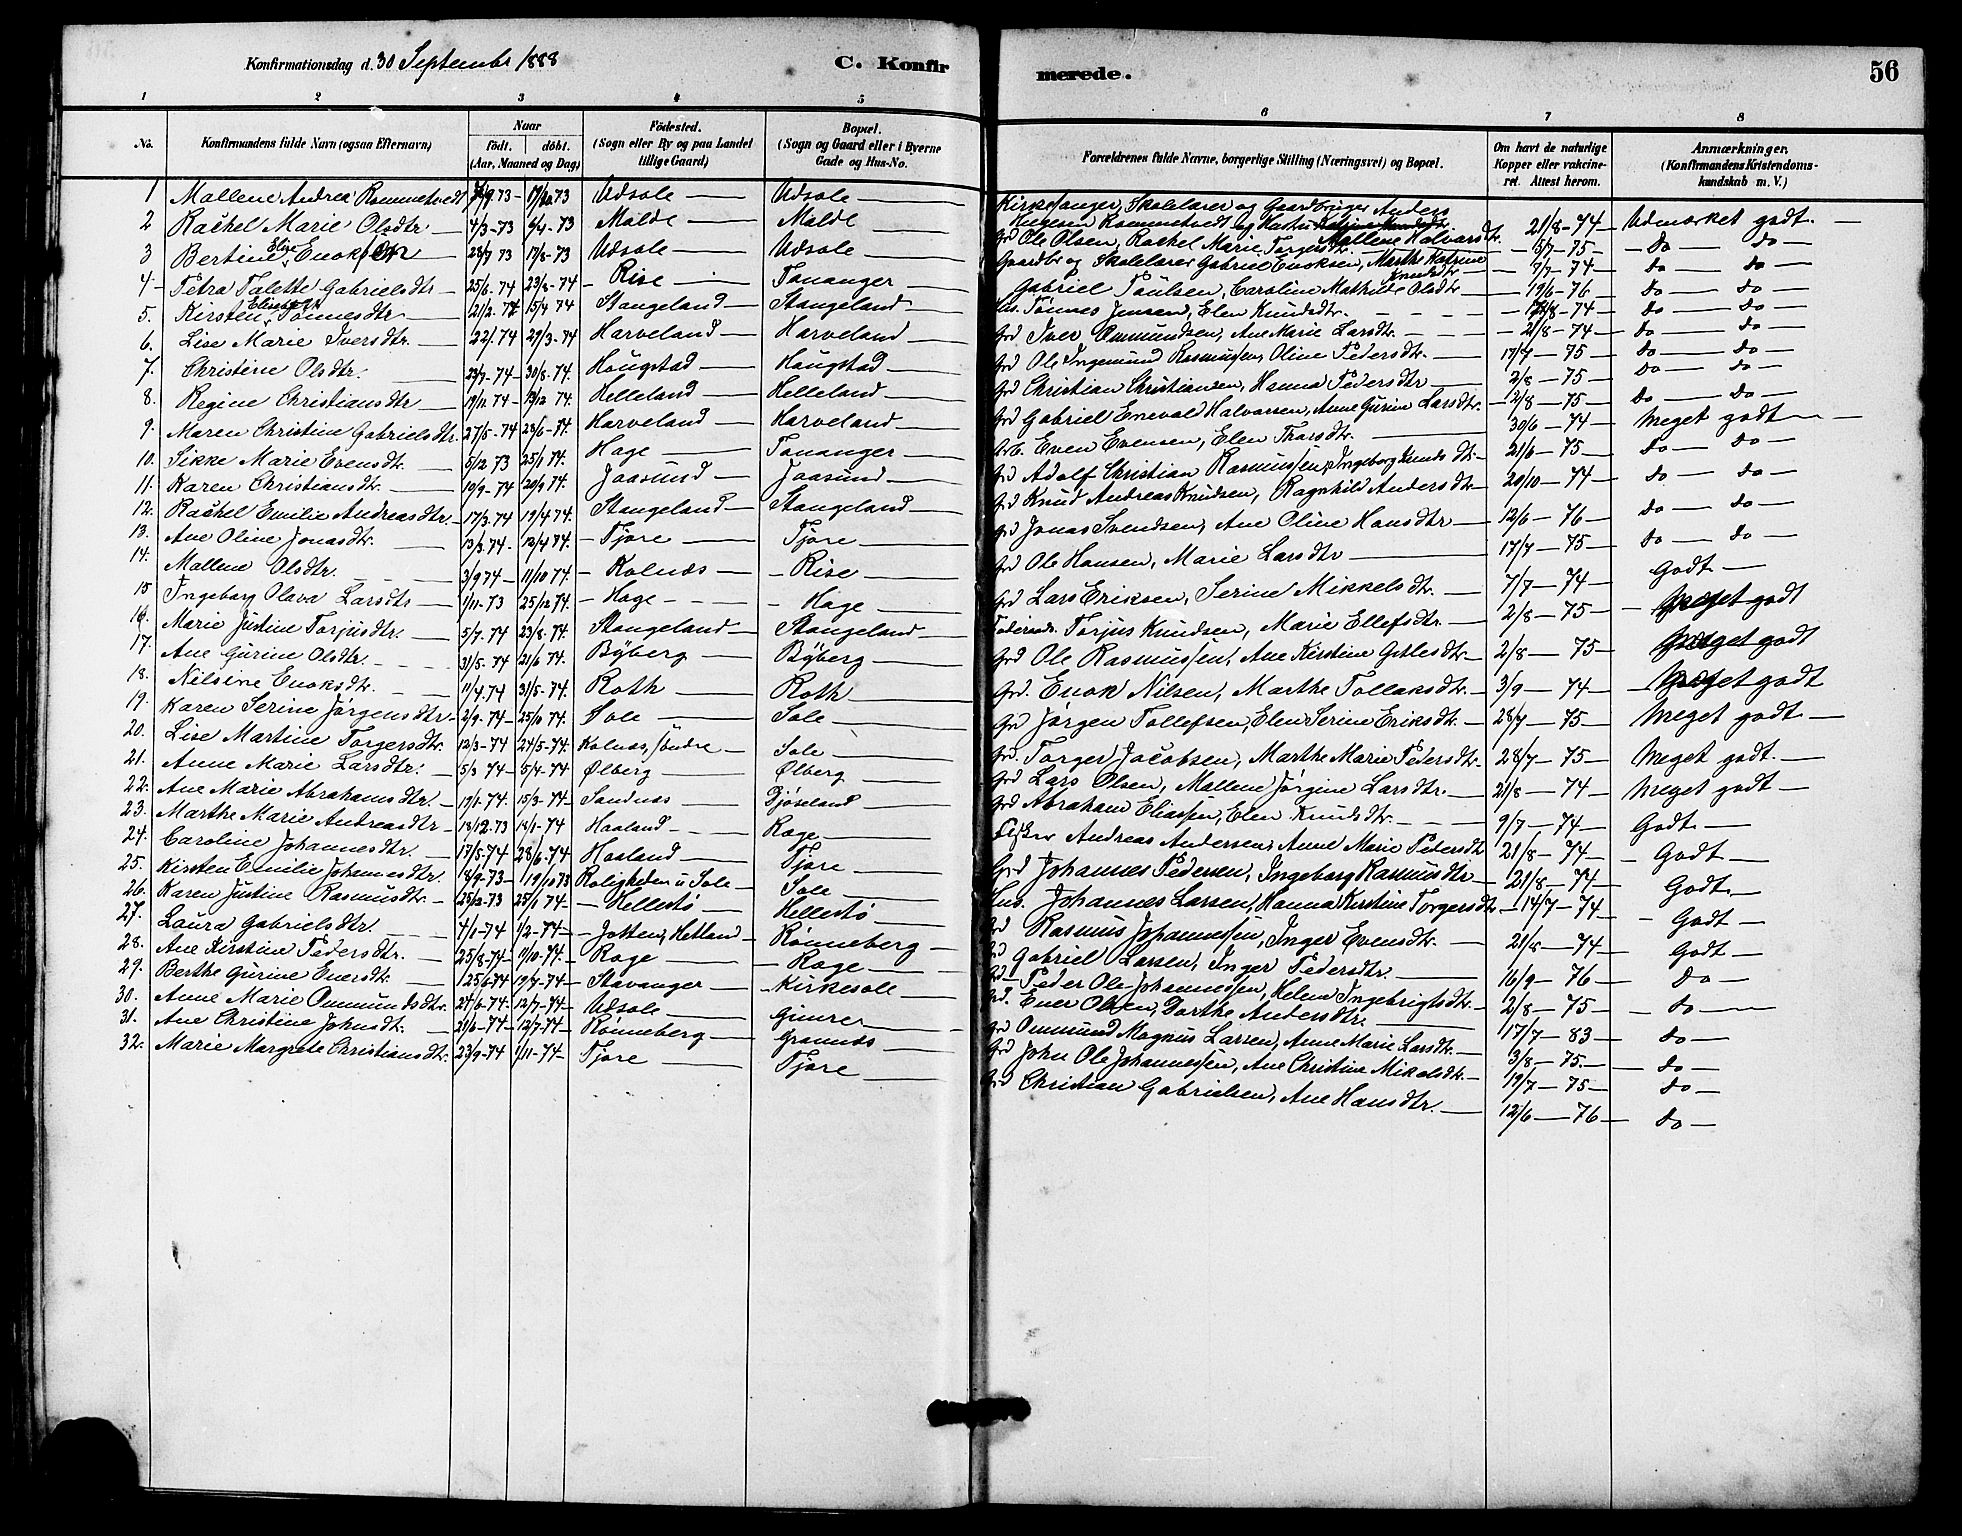 Konfirmationsdag d. 30 September 1888
C. Konfirmerede.
56
1 2 3 4 5 6 7 8
No.
Konfirmandens fulde Navn (ogsaa Efternavn)
Naar
födt. döbt.
(Aar, Maaned og Dag)
Födested.
(Sogn eller By og paa Landet
tillige Gaard)
Bopæl.
(Sogn og Gaard eller i Byerne
Gade og Hus-No.
Forældrenes fulde Navne, borgerlige Stilling (Næringsvei) og Bopæl.
Om havt de naturlige
Kopper eller vakcine-
ret. Attest herom.
Anmærkninger,
(Konfirmandens Kristendoms-
kundskab m. V.)
1 Mallene Andrea Rommetvedt 73 - 73 Udsole — Udsole — Kirkesanger, Skolelærer og Gaardbruger Anders
Rommetvedt og Hustru Mallene Halvorsdtr. 21/8 - 74 — Udmærket godt. —
2 Rachel Marie Olsdtr — 4/3 - 73 6/4 - 73 Malde — Malde — Grd Ole Olsen, Rachel Marie Torgersdtr. — 5/7 - 75 — do — do —
3 Bertine Elise Enoksen 28/7 73 17/8 - 73 Udsole — Udsole — Gaardbr og Skolelærer Gabriel Enoksen, Marthe Katrine
Knudsdtr — 7/7 - 74 — do — do —
4 - Petra Talette Gabrielsdtr 25/6 - 74 23/8 - 74 — Rise — Tananger — Gabriel Paulsen, Caroline Mathilde Olsdtr — 19/6 - 76 — do — do —
5. Kirsten Elisabeth Tønnesdtr — 21/2 - 74 15/4 74 Stangeland — Stangeland — Tønnes Jensen, Elen Knudsdtr. — 74 — do — do —
6. Lise Marie Iversdtr. — 22/ - 74 29/3 - 74 Harveland — Harveland — Grd Iver Ommundsen, Ane Marie Larsdtr. — 21/8 - 74 — do — do —
7. Christine Olsdtr. — 74 30/8 - 74. Haugstad — Haugstad — Grd Ole Ingemund Rasmussen, Oline Pedersdtr. — 17/7 - 75 — do — do —
8. Regine Christiansdtr — 19/11 74 - 13/12 74. Helleland — Helleland — Grd Christian Christiansen, Hanna Pedersdtr — 2/8 - 75 — do — do —
9. Maren Christine Gabrielsdtr. 27/5 - 74 28/6 - 74. Harveland — Harveland — Grd Gabriel Enevald Halvorsen, Anne Gurine Larsdtr. — 2/8 - 75 — do — do —
10. Sikke Marie Evensdtr. — 5/12 73 25/1 74. Hage — Tananger — Arb. Even Evensen, Elen Tharsdtr. — 30/6 - 74 — Meget godt —
11. Karen Christiansdtr — 19/9 - 74 20/9 74. Jaasund — Jaasund — Grd Adolf Christian Rasmussen, Ingeborg dtr — 21/6 - 75 — do — do —
12. Rachel Emilie Andreasdtr. 17/3. 74 19/4 74. Stangeland — Stangeland — Grd Knud Andreas Knudsen, Ragnhild Andersdtr — 20/10 - 74 — do — do —
13. Ane Oline Jonasdtr. — 13/3. 74. 12/4 74. — Tjore — Tjore — Grd Jonas Svendsen, Ane Oline Hansdtr — 12/6 - 76 — do — do —
14. Mallene Olsdtr. — 3/9 74 - 11/10 74. — Kolnæs — Rise — Grd Ole Hansen, Marie Larsdtr — 17/7 - 75 — do — do —
15 Ingeborg Olava Larsdtr — 1/11 - 73 25/12 74. — Hage — Hage — Grd Lars Eriksen, Serine Mikkelsdtr. — 7/7 - 74 — Godt —
16. Marie Justine Torjusdtr. — 5/7. 74 23/8 - 74. Stangeland — Stangeland — Torjus Knudsen, Marie Ellefsdtr. — 2/8 - 75 — Meget godt
17. Ane Gurine Olsdtr. — 31/5 - 74 21/6 74. Byberg — Byberg — Grd Ole Rasmussen, Ane Kirstine Gitlesdtr — 2/8 - 75 — Meget godt
18. Nilsine Enoksdtr. — 11/4. 74 31/5 - 74. Roth — Roth — Grd. Enok Nilsen, Marthe Tollaksdtr. — 3/9 - 74 — Meget godt
19. Karen Serine Jørgensdtr — 2/9 - 74 - 25/10 74. Sole — Sole — Grd Jørgen Tollefsen, Elen Serine Eriksdtr. — 28/7 - 75 — Meget godt —
20. Lise Martine Torgersdtr. 12/3 - 74 24/5 - 74. Kolnæs, søndre — Sole — Grd. Torger Jacobsen, Marthe Marie Pedersdtr. 28/7 - 75 — Meget godt. —
21. Anne Marie Larsdtr. — 5/3 74 - 5/4 - 74 Ølberg — Ølberg — Grd Lars Olsen, Mallene Jørgine Larsdtr. — 21/8 - 74 — Meget godt —
22. Ane Marie Abrahamsdtr. — 19/1 - 74. 15/3 - 74 — Sandnæs — Djøseland — Grd Abraham Eliassen, Elen Knudsdtr. — 9/7 - 74 — Godt —
23. Marthe Marie Andreasdtr — 18/12 - 73 18/1 - 74 Haaland — Rage — Fisker Andreas Andersen, Anne Marie Pedersdtr 21/8 - 74 — Godt —
24. Caroline Johannesdtr. — 17/5 - 74 28/6 - 74 Haaland — Tjore — Grd Johannes Pedersen, Ingeborg Rasmusdtr — 21/8 - 74 — Godt —
25. Kirsten Emilie Johannesdtr. 18/9 - 73 — 19/10 73 Roligheden u Sole — Sole — Hus. Johannes Larsen, Hanna Kirstine Torgersdtr — 14/7 - 74 — Godt —
26. Karen Justine Rasmusdtr. — 73 25/1 74. — Hellestø — Hellestø — Rasmus Johannessen, Inger Evensdtr. — 21/8 - 74 — Godt —
27. Laura Gabrielsdtr. — 4/1 - 74 1/2 - 74 — Jotten, Hetland — Rønneberg — Gabriel Larsen, Inger Pedersdtr. — 16/9 - 76 — do —
28. Ane Kirstine Pedersdtr. — 25/8 - 74 — 11/10 - 74 — Rage — Rage — Grd Peder Ole Johannessen, Helene Ingebrigtsdtr. — 2/8 - 75 — do —
29. Berthe Gurine Enersdtr. — 25/6 74 19/7 - 74 — Stavanger — Kirkesole — Grd. Ener Olsen, Dorthe Andersdtr. — 17/7 - 83 — do —
30. Anne Marie Ommundsdtr. 24/6 - 74. 12/7 - 74 — Udsole — Gimre — Grd Ommund Magnus Larsen, Anne Marie Larsdtr. — 3/8 - 75. — do —
31. Ane Christine Johnsdtr. — 21/6 - 74 - 12/7 74 — Rønneberg — Grannæs — Grd John Ole Johannessen, Ane Christine Mikalsdtr. — 19/7 - 75 — do —
32. Marie Margrete Christiansdtr. 23/9 - 74 1/11 - 74 — Tjore — Tjore — Grd Christian Gabrielsen, Ane Hansdtr. — 12/6 - 76 — do —